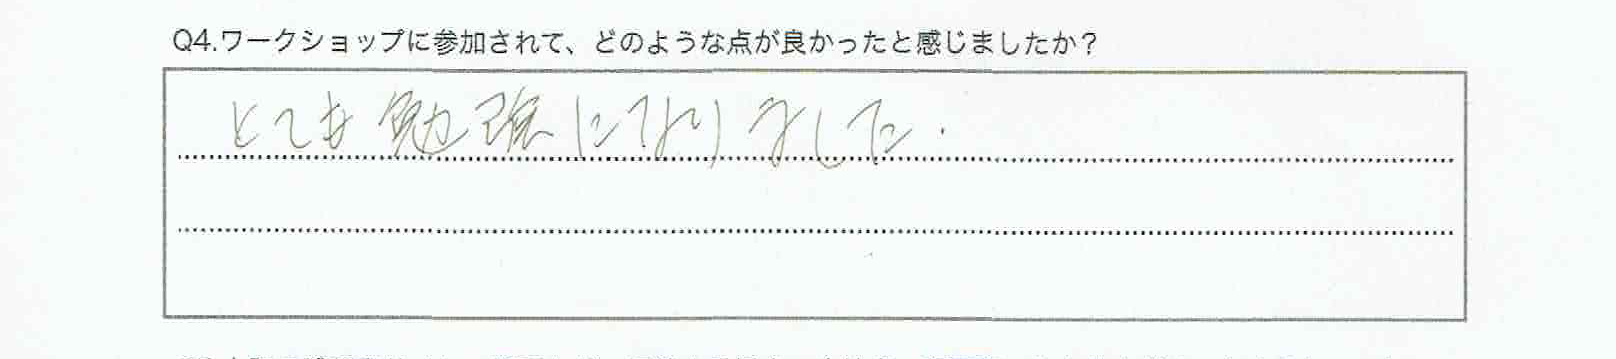 Q4.ワークショップに参加されて、どのような点が良かったと感じましたか？
とても勉強になりました.